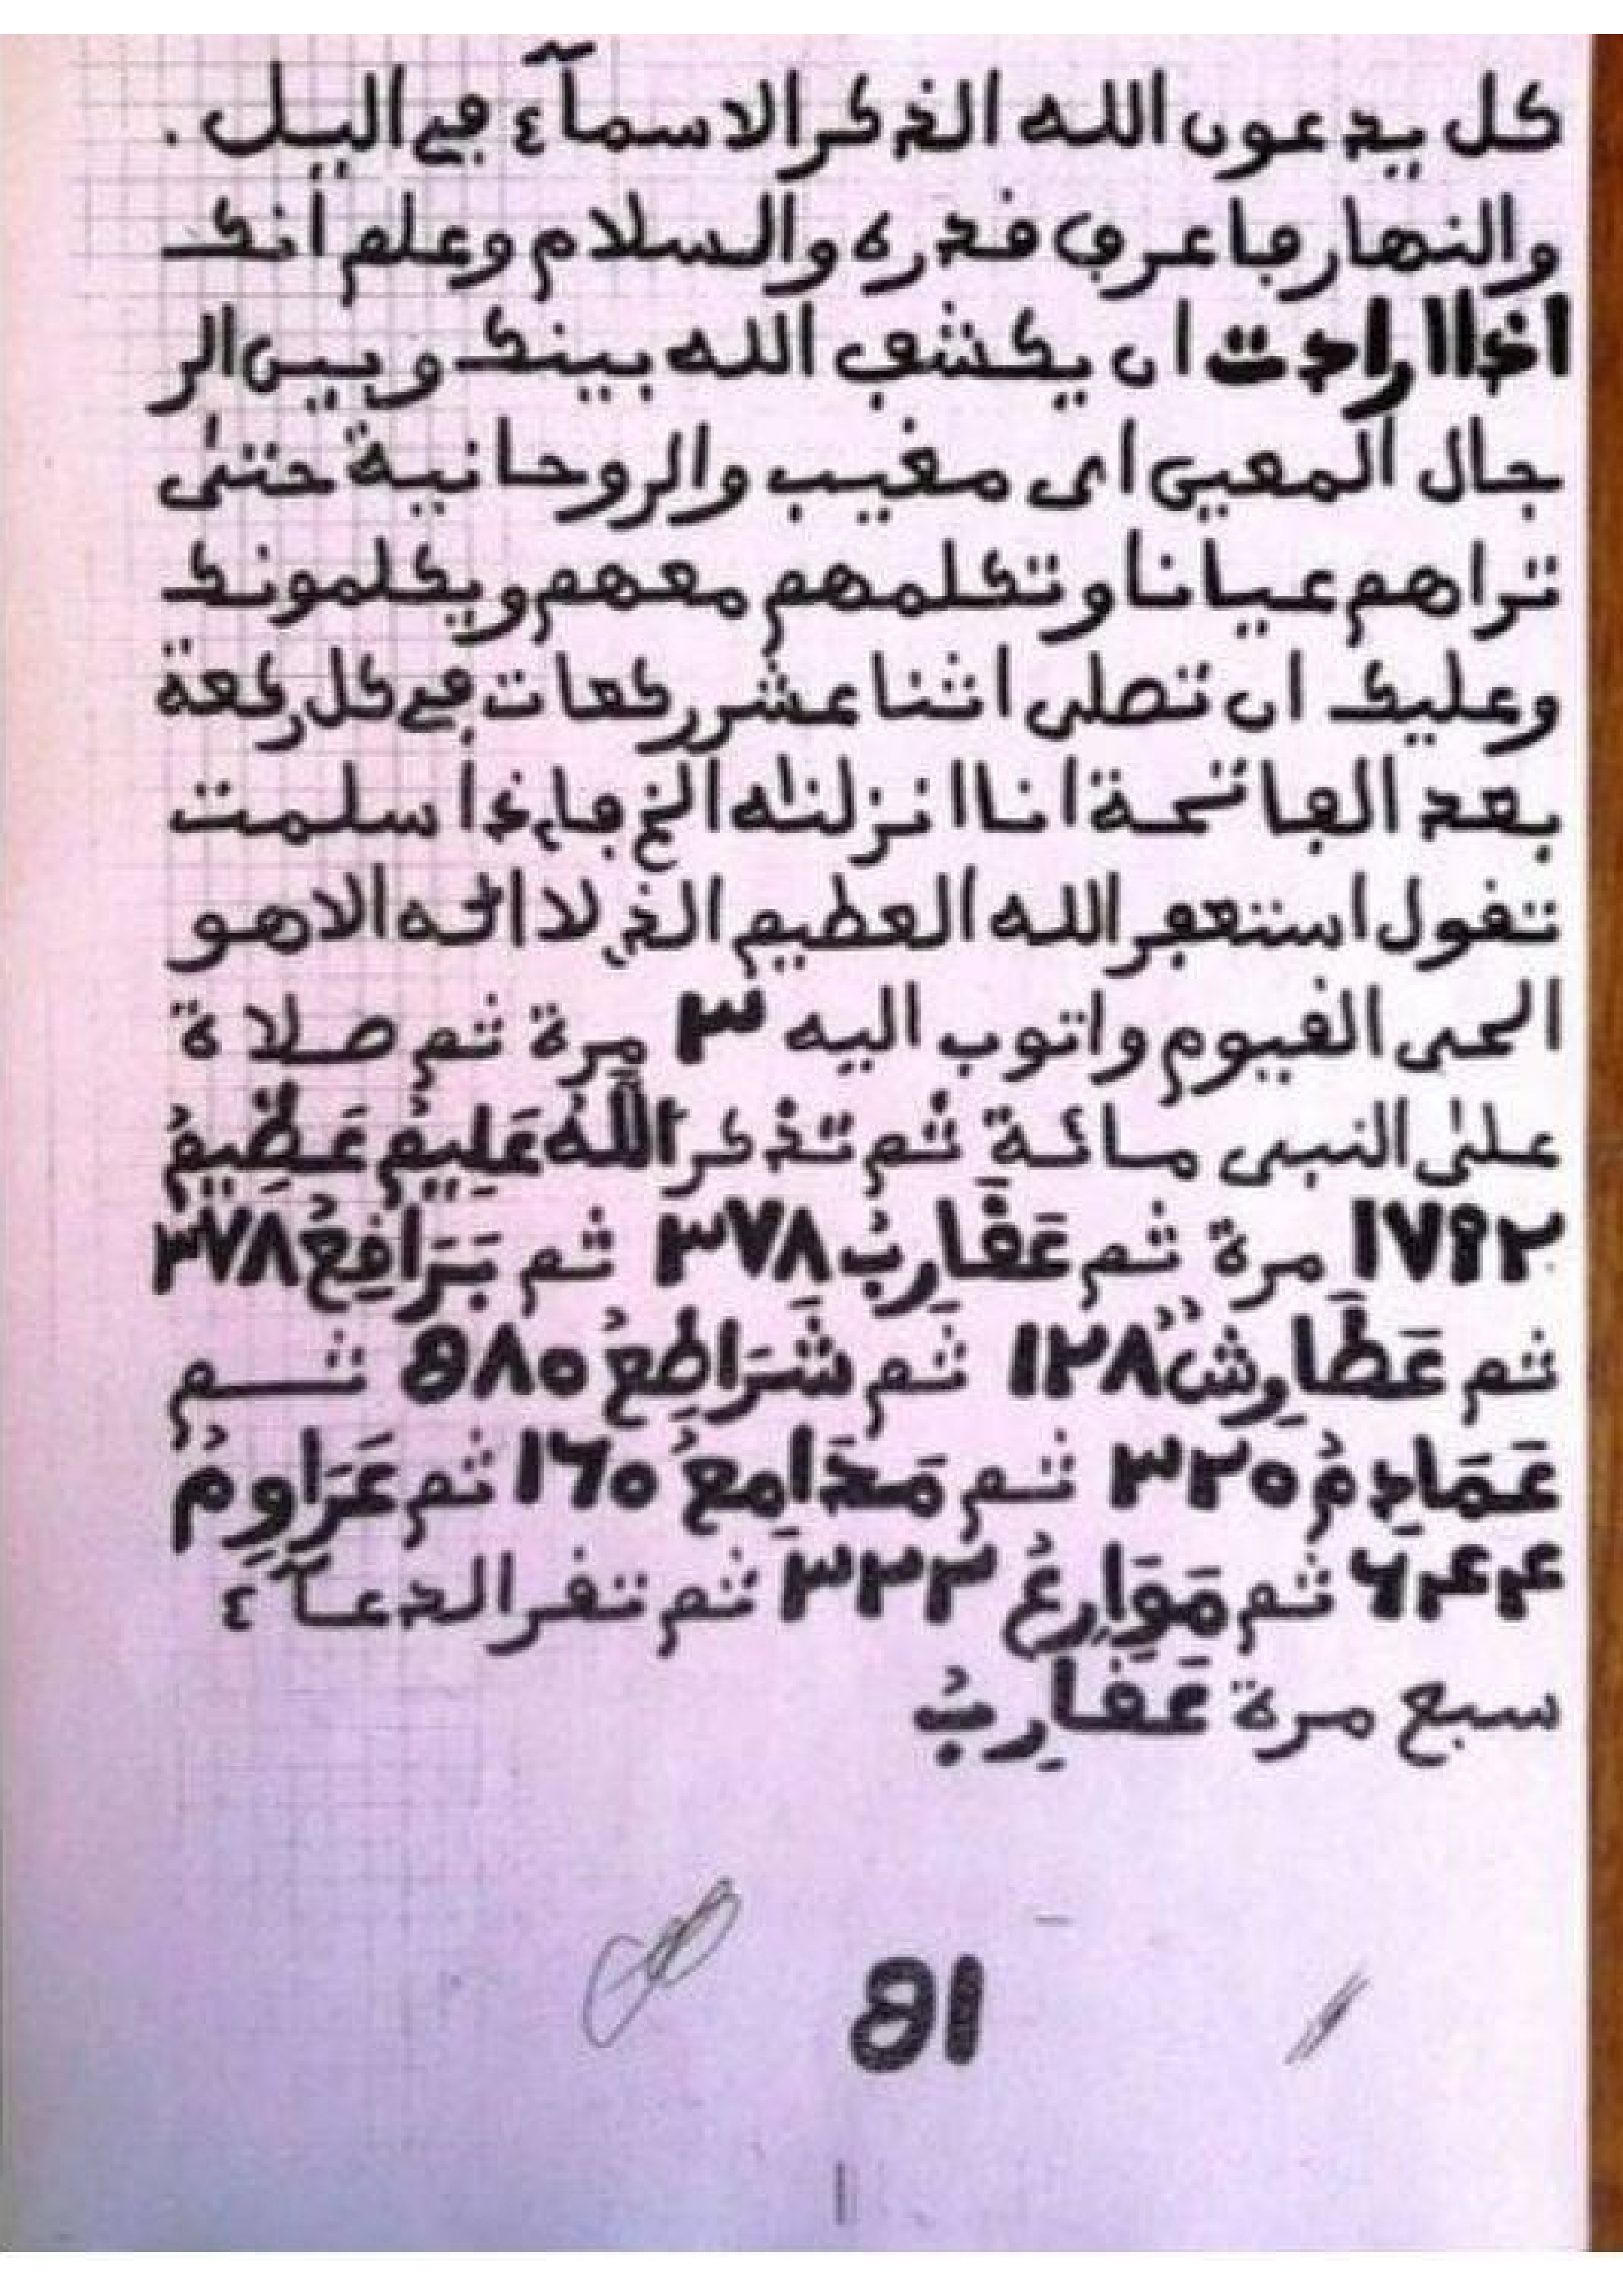 كل يدعون الله الذكر الاسمآء في اليل .
والنهار ما عرف قدره والسلام وعلم أنك
اذاارادت ان يكشف الله بينك وبين الر
جال المعيى اى مغيب والروحانية حتى
تراهم عيانا وتكلمهم معهم ويكلمونك
وعليك ان تصلى اثنا عشر ركعات في كل ركعة
بعد الفاتحة انا انزلنٰه الخ فإذا سلمت
تقول استغفر الله العظيم الذ لا اله الا هو
الحى القيوم واتوب اليه ٣ مرة ثم صلاة
على النبى مائة ثم تذكر اللهُ عَلِيمُ عَظِيمُ
١٧٩٢ مرة ثم عَقَارِبُ ٣٧٨ ثم بَرَافِعُ ٣٧٨
ثم عَطَارِشُ ١٢٨ ثم شَرَاطِعُ ٥٨٠ ثم
عَمَادِمُ ٣٢٠ ثم مَدَامِعُ ١٦٠ ثم عَرَاوِمُ
٦٤٤ ثم مَوَارِعُ ٣٢٢ ثم تقر الدعآء
سبع مرة عَقَارِبُ